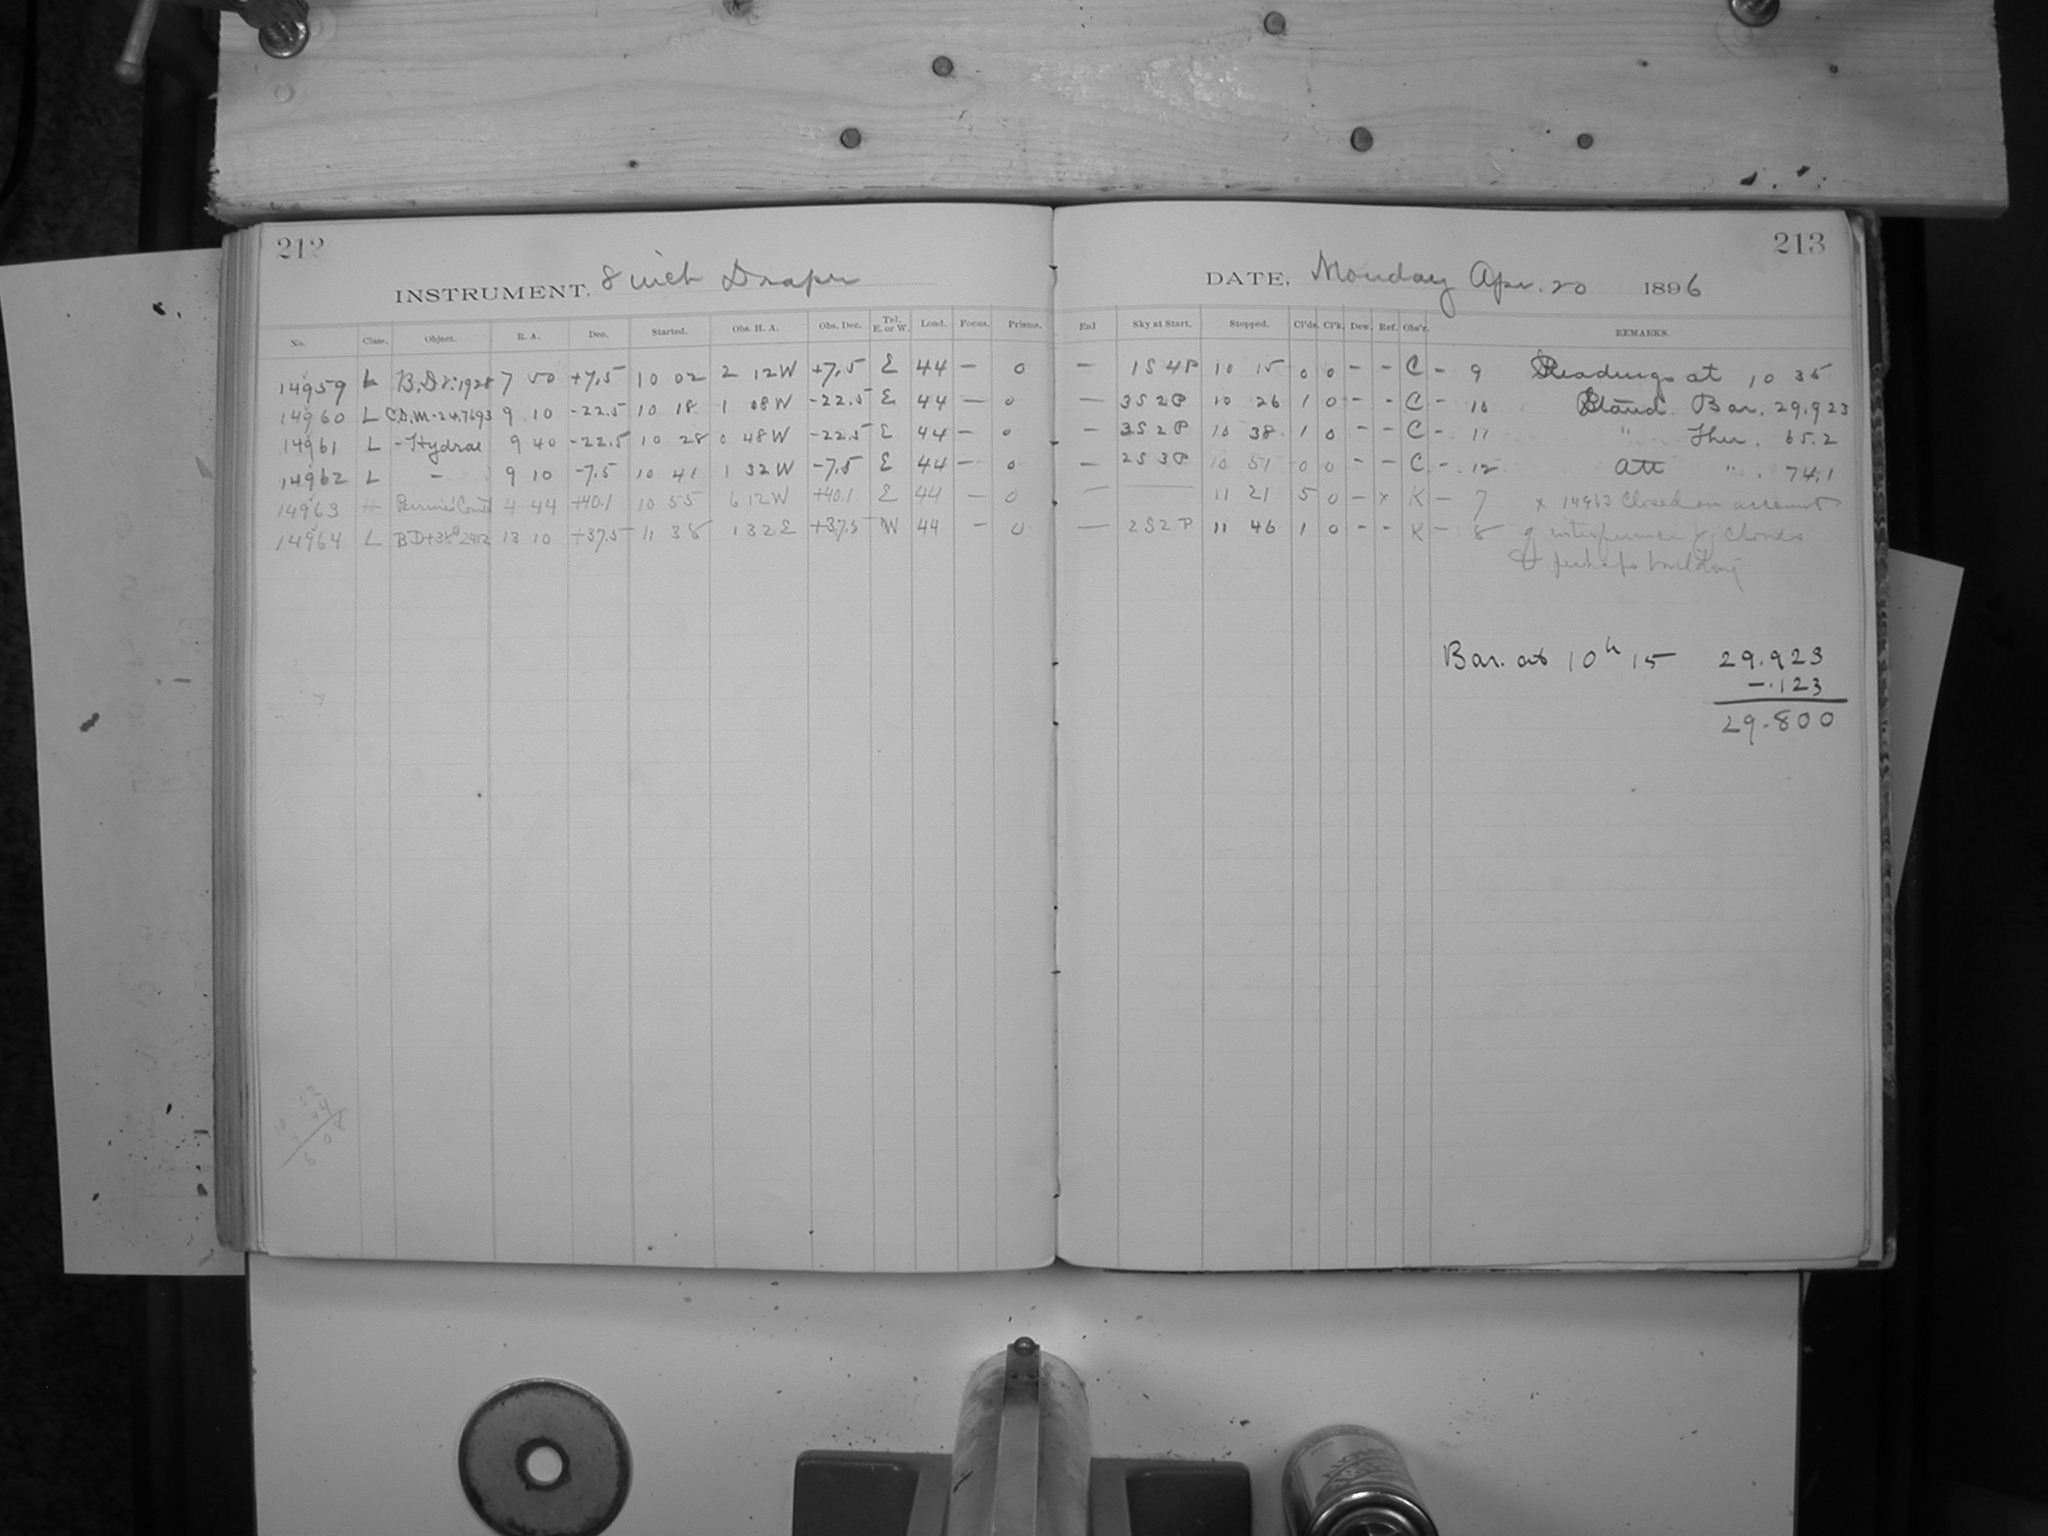 212
INSTRUMENT, 8 inch Draper
No. Class. Object. R. A. Dec. Started. Obs. H. A. Obs. Dec. Tel. E. or W. Load. Focus. Prisms.
14959 L B.D 8°.1928 7 50 +7.5 10 02 2 12 W +7.5 E 44 — 0
14960 L C.D.M.-24.7693 9 10 -22.5 10 18 1 08 W -22.5 E 44 — 0
14961 L - Hydrae 9 40 -22.5 10 28 0 48 W -22.5 E 44 — 0
14962 L - 9 10 -7.5 10 41 1 32 W -7.5 E 44 — 0
14963 4 44 +40.1 10 55 6 12 W +40.1 E 44 — 0
14964 L BD+38° 2412 13 10 +37.5 11 38 1 32 E +37.5 W 44 — 0
213
DATE, Monday Apr. 20 1896
Exl Sky at Start. Stopped. Cl'ds. Cl'k. Dew. Ref. Obs'r. REMARKS.
— 1S 4P 10 15 0 0 - - C - 9 Readings at 10 35
— 3S 2P 10 26 1 0 - - C - 10 Stand. Bar. 29.923
— 3S 2P 10 38 1 0 - - C - 11 " Ther. 65.2
— 2S 3P 10 51 0 0 - - C - 12 Att " . 74.1
— — 11 21 5 0 - x K - 7 x 14963 Closed on account
— 2S 2P 11 46 1 0 - - K - 8 of interference by clouds
& perhaps building
Bar. at 10h 15 29.923
-.123
29.800